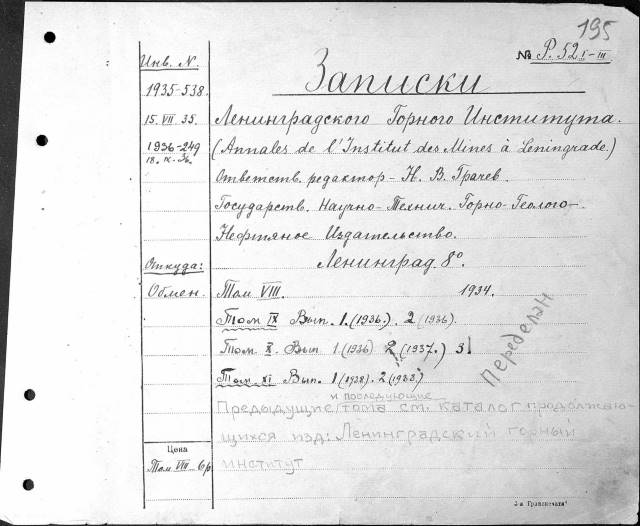 195
№ Р. 52 I-III
Инв. N.
Записки
1935-538.
15. VII. 35.
Ленинградского Горного Института.
1936-249
18. IX. 36.
(Annales de l'Institut des Mines à Leningrade.)
Ответств. редактор - Н. В. Грачев.
Государств. Научно-Технич. Горно-Геолого-
Нефтяное Издательство.
Откуда:
Ленинград. 8°.
Обмен.
Том VIII. 1934.
Том IX Вып. 1. (1936.). 2 (1936).
Том X. Вып 1. (1936) 2 (1937.)
Том XI Вып. 1 (1938). 2 (1938.)
Переделан
и последующие
Предыдущие тома см. каталог продолжаю-
щихся изд: Ленинградский горный
институт
Цена
Том VIII - 6р
3-я Гранпечать